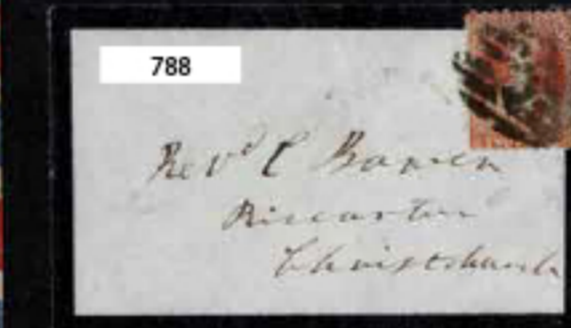 788
Revd C Bowen
Riccarton
Christchurch